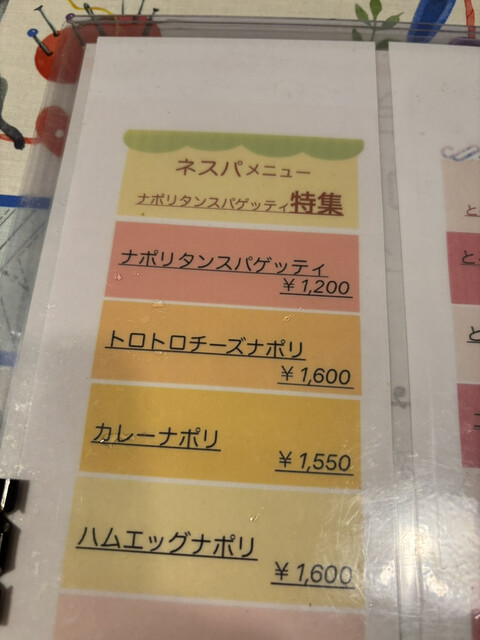 ネスパメニュー
ナポリタンスパゲッティ特集
ナポリタンスパゲッティ
¥1,200
トロトロチーズナポリ
¥1,600
カレーナポリ
¥1,550
ハムエッグナポリ
¥1,600
と
と
と